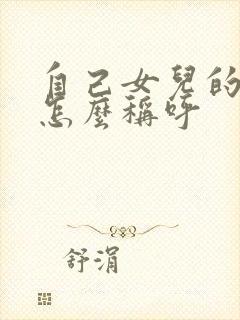 自己女兒的
怎麼稱呼
舒涓